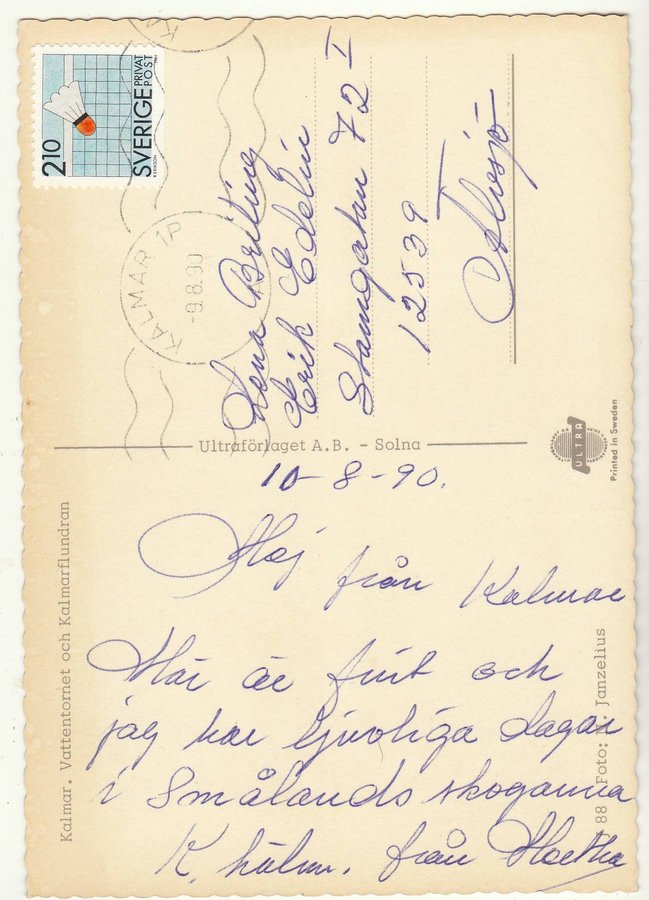 2.10
SVERIGE
PRIVAT
POST
KALMAR 1P
-9.8.90
Lena Briting
Erik Edelin
Stamgatan 72 I
12539
Älvsjö
Ultraförlaget A.B. - Solna
ULTRA
Printed in Sweden
Kalmar. Vattentornet och Kalmarflundran
10-8-90.
Hej
från Kalmar
Här är fint och
jag har ljuvliga dagar
i Smålands skogarna
K. hälsn. från Martha
88 Foto: Janzelius